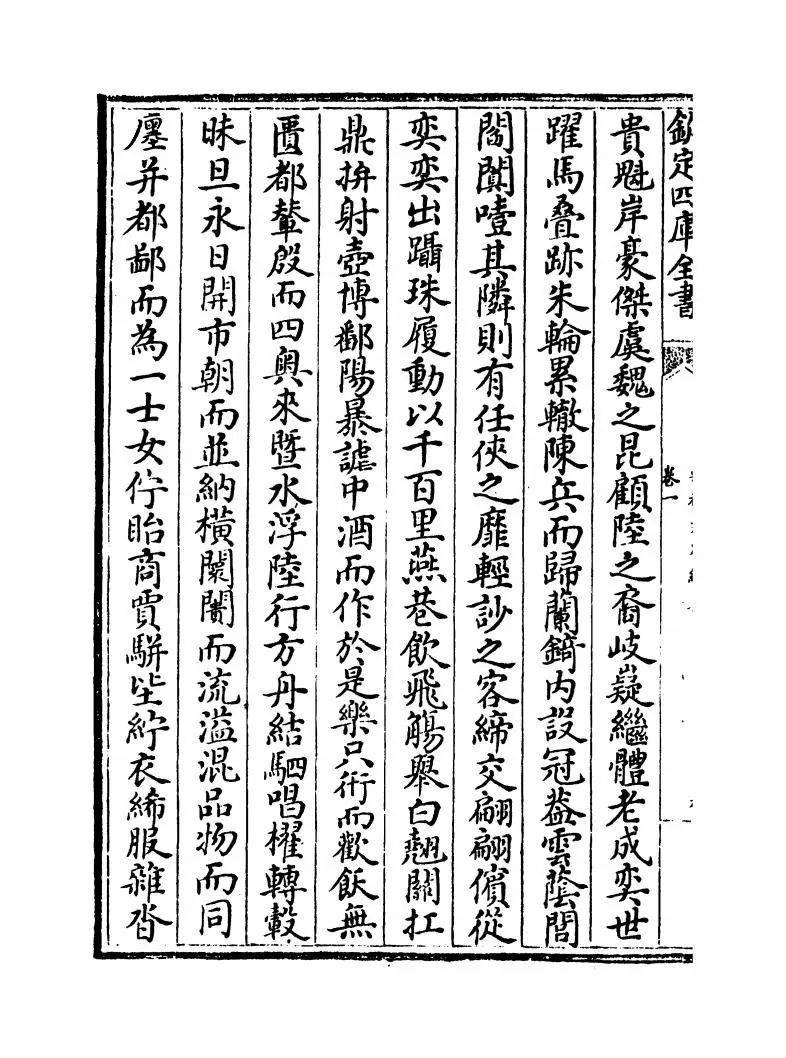 欽定四庫全書
卷一
貴魁岸豪傑虞魏之昆顧陸之裔岐嶷繼體老成奕世
躍馬疊跡朱輪累轍陳兵而歸蘭錡内設冠葢雲蔭閭
閻闐噎其隣則有任俠之靡輕訬之客締交翩翩儐從
奕奕出躡珠履動以千百里燕巷飲飛觴舉白翹關扛
鼎拚射壺博鄱陽暴謔中酒而作於是樂只衎而歡飫無
匱都輦殷而四奥來暨水浮陸行方舟結駟唱櫂轉轂
昧旦永日開市朝而並納横闤闠而流溢混品物而同
廛并都鄙而為一士女佇眙商賈駢坒紵衣絺服雜沓